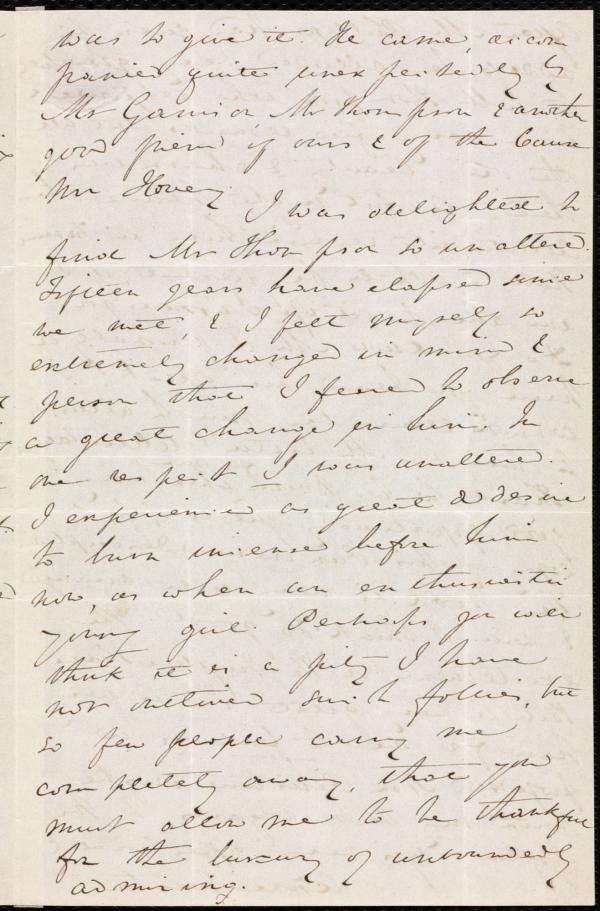 was to give it. He came, accom
panied quite unexpectedly by
Mr Garrison, Mr Thompson & another
good friend of ours & of the Cause
Mr Hovey. I was delighted to
find Mr Thompson so unaltered.
Fifteen years have elapsed since
we met, & I felt myself so
extremely changed in mind &
person that I feared to observe
a great change in him. In
one respect I was unaltered.
I experienced as great a desire
to burn incense before him
now, as when an enthusiastic
young girl. Perhaps you will
think it is a pity I have
not outlived such follies, but
so few people carry me
completely away, that you
must allow me to be thankful
for the luxury of unboundedly
admiring.